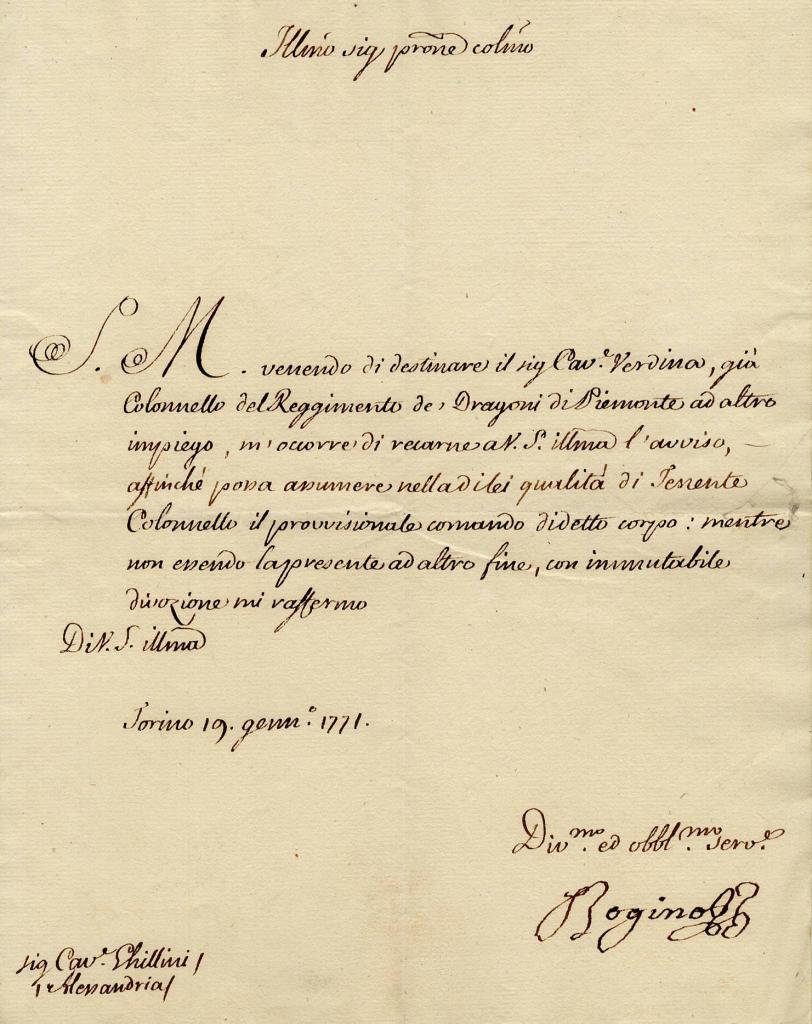 Illmo sig prone colmo
S. M. venendo di destinare il sig Cav.e Verdina, già
Colonnello del Reggimento de' Dragoni di Piemonte ad altro
impiego, m'occorre di recarne a V. S. illma l'avviso, —
affinché possa assumere nella di lei qualità di Tenente
Colonnello il provvisionale comando di detto corpo: mentre
non essendo la presente ad altro fine, con immutabile
divozione mi raffermo
Di V. S. illma
Torino 19. genn.o 1771.
Div.mo ed obbl.mo serv.e
Bogino
sig Cav.e Ghillini /
Alessandria /